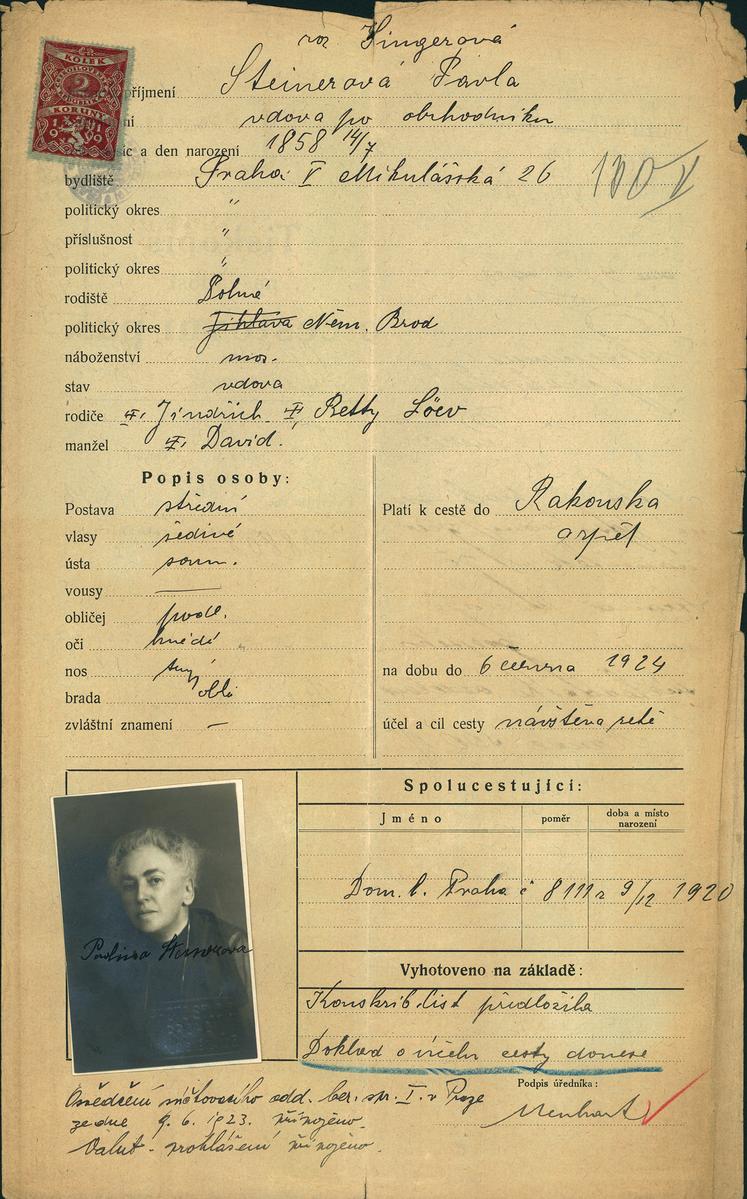 roz. Singerová
KOLEK
2
KORUNY
1919
příjmení Steinerová Pavla
vdova po obchodníku
a den narození 1858 14/7
bydliště Praha V Mikulášská 26
politický okres "
příslušnost "
politický okres "
rodiště Polná
politický okres Jihlava Něm. Brod
náboženství mos.
stav vdova
rodiče Jindřich Betty Löw
manžel David.
Popis osoby:
Postava střední
vlasy šedivé
ústa soum.
vousy —
obličej podl.
oči hnědé
nos
brada obl.
zvláštní znamení —
Platí k cestě do Rakouska
a zpět
na dobu do 6 června 1924
účel a cíl cesty návštěva
Spolucestující:
Jméno poměr doba a místo narození
Dom. l. Praha č 8111 z 9/12 1920
Vyhotoveno na základě:
Konskrib. list předložila
Doklad o účelu cesty donese
Podpis úředníka:
Osvědčení ber. spr. I. v Praze
ze dne 9. 6. 1923. připojeno.
Valut. prohlášení připojeno.